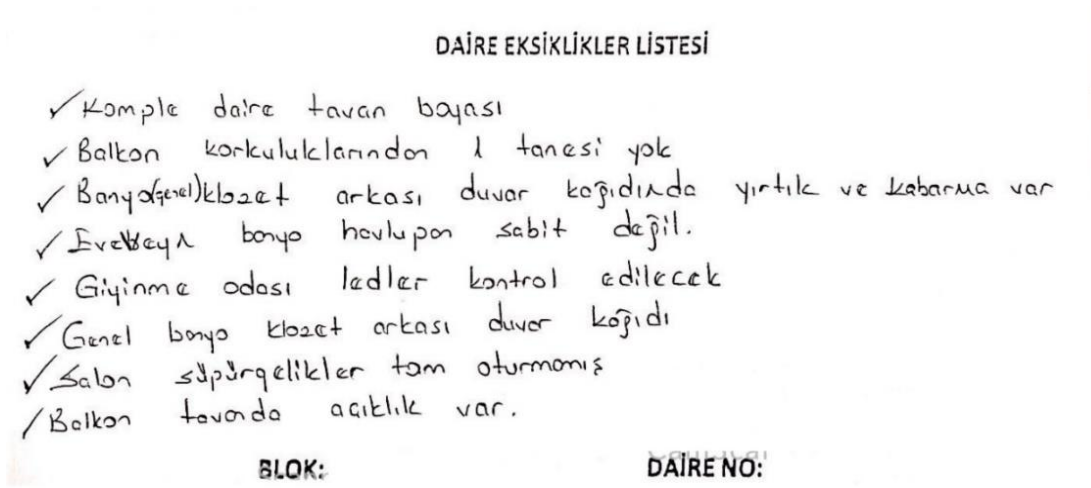 DAİRE EKSİKLİKLER LİSTESİ
✓ Komple daire tavan boyası
✓ Balkon korkuluklarından 1 tanesi yok
✓ Banyo(genel)klozet arkası duvar kağıdında yırtık ve kabarma var
✓ Ebeveyn banyo havlupan sabit değil.
✓ Giyinme odası ledler kontrol edilecek
✓ Genel banyo klozet arkası duvar kağıdı
✓ Salon süpürgelikler tam oturmamış
/ Balkon tavanda açıklık var.
BLOK: DAİRE NO: